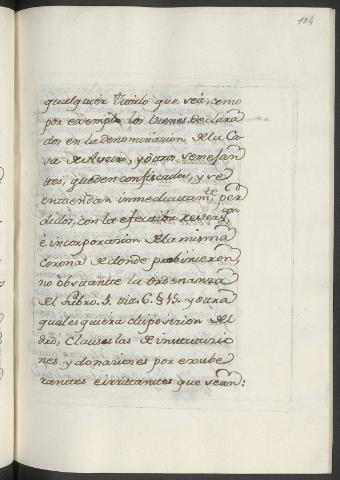 104
qualquier titulo que sea, como
por exemplo los bienes declara
dos en la denominacion de la Ca
sa de Aveiro, y otros semejan
tes, queden confiscados, y se
entiendan inmediatam.te per
didos, con la efectiba reversion
è incorporacion de la misma
Corona de donde probinieron,
no obstante la Ordenanza
del Libro. 5. titt. 6. § 15. y otra
qualesquiera disposicion del
dro, Clausulas de institucio
nes y donaciones por exube
rantes e irritantes que sean: